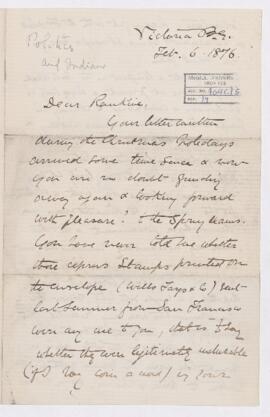 Victoria B.C.
Feb. 6 1876
Politics
and Indians
Dear Rankine,
Your letter written
during the Christmas holidays
arrived some time since & now
you are no doubt grinding
away again & looking forward
with pleasure? to the Spring exams.
You have never told me whether
those express Stamps printed on
the envelope (Wells Fargo & Co) sent
last Summer from San Francisco
were any use to you, that is to say
whether they were legitimately
(if I may coin a word) in your